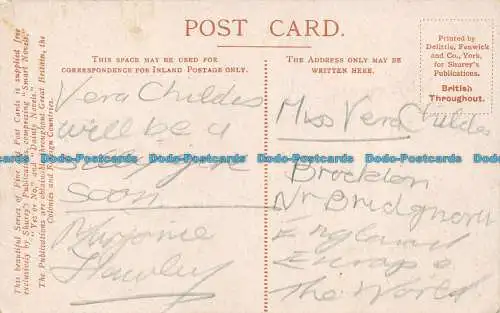 POST CARD.
THIS SPACE MAY BE USED FOR
CORRESPONDENCE FOR INLAND POSTAGE ONLY.
THE ADDRESS ONLY MAY BE
WRITTEN HERE.
Printed by
Delittle, Fenwick
and Co., York,
for Shurey's
Publications.
British
Throughout.
This beautiful Series of Fine Art Post Cards is supplied free
exclusively by Shurey's Publications, comprising "Smart Novels,"
"Yes or No," and "Dainty Novels."
The Publications are obtainable throughout Great Britain, the
Colonies and Foreign Countries.
Vera Childes
will be a
silly
soon
Marjorie
Hawley
Miss Vera Childes
Brockton
Nr Bridgnorth
England
Europe
The World
Dodo-Postcards Dodo-Postcards Dodo-Postcards Dodo-Postcards Dodo-Postcards